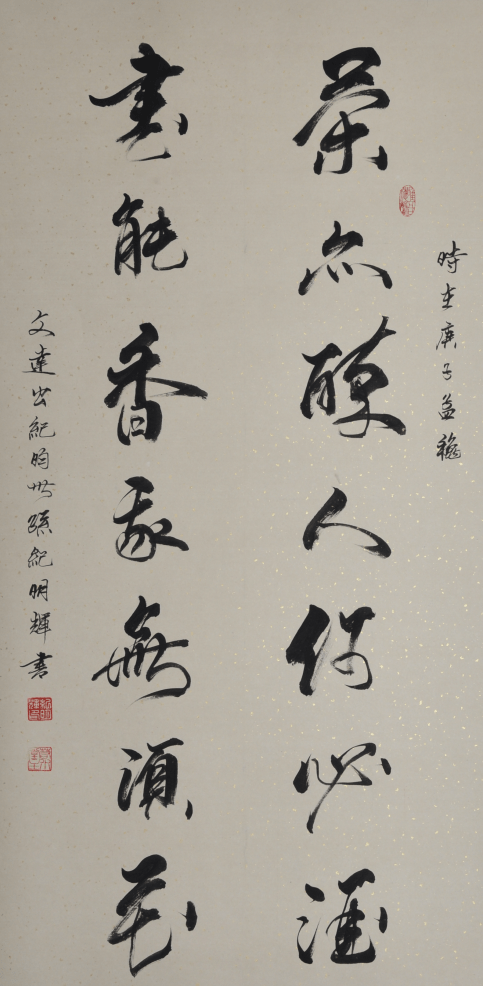 時在庚子孟穐
茶亦醉人何必酒
書能香我無須花
文達公紀昀世孫紀明輝書